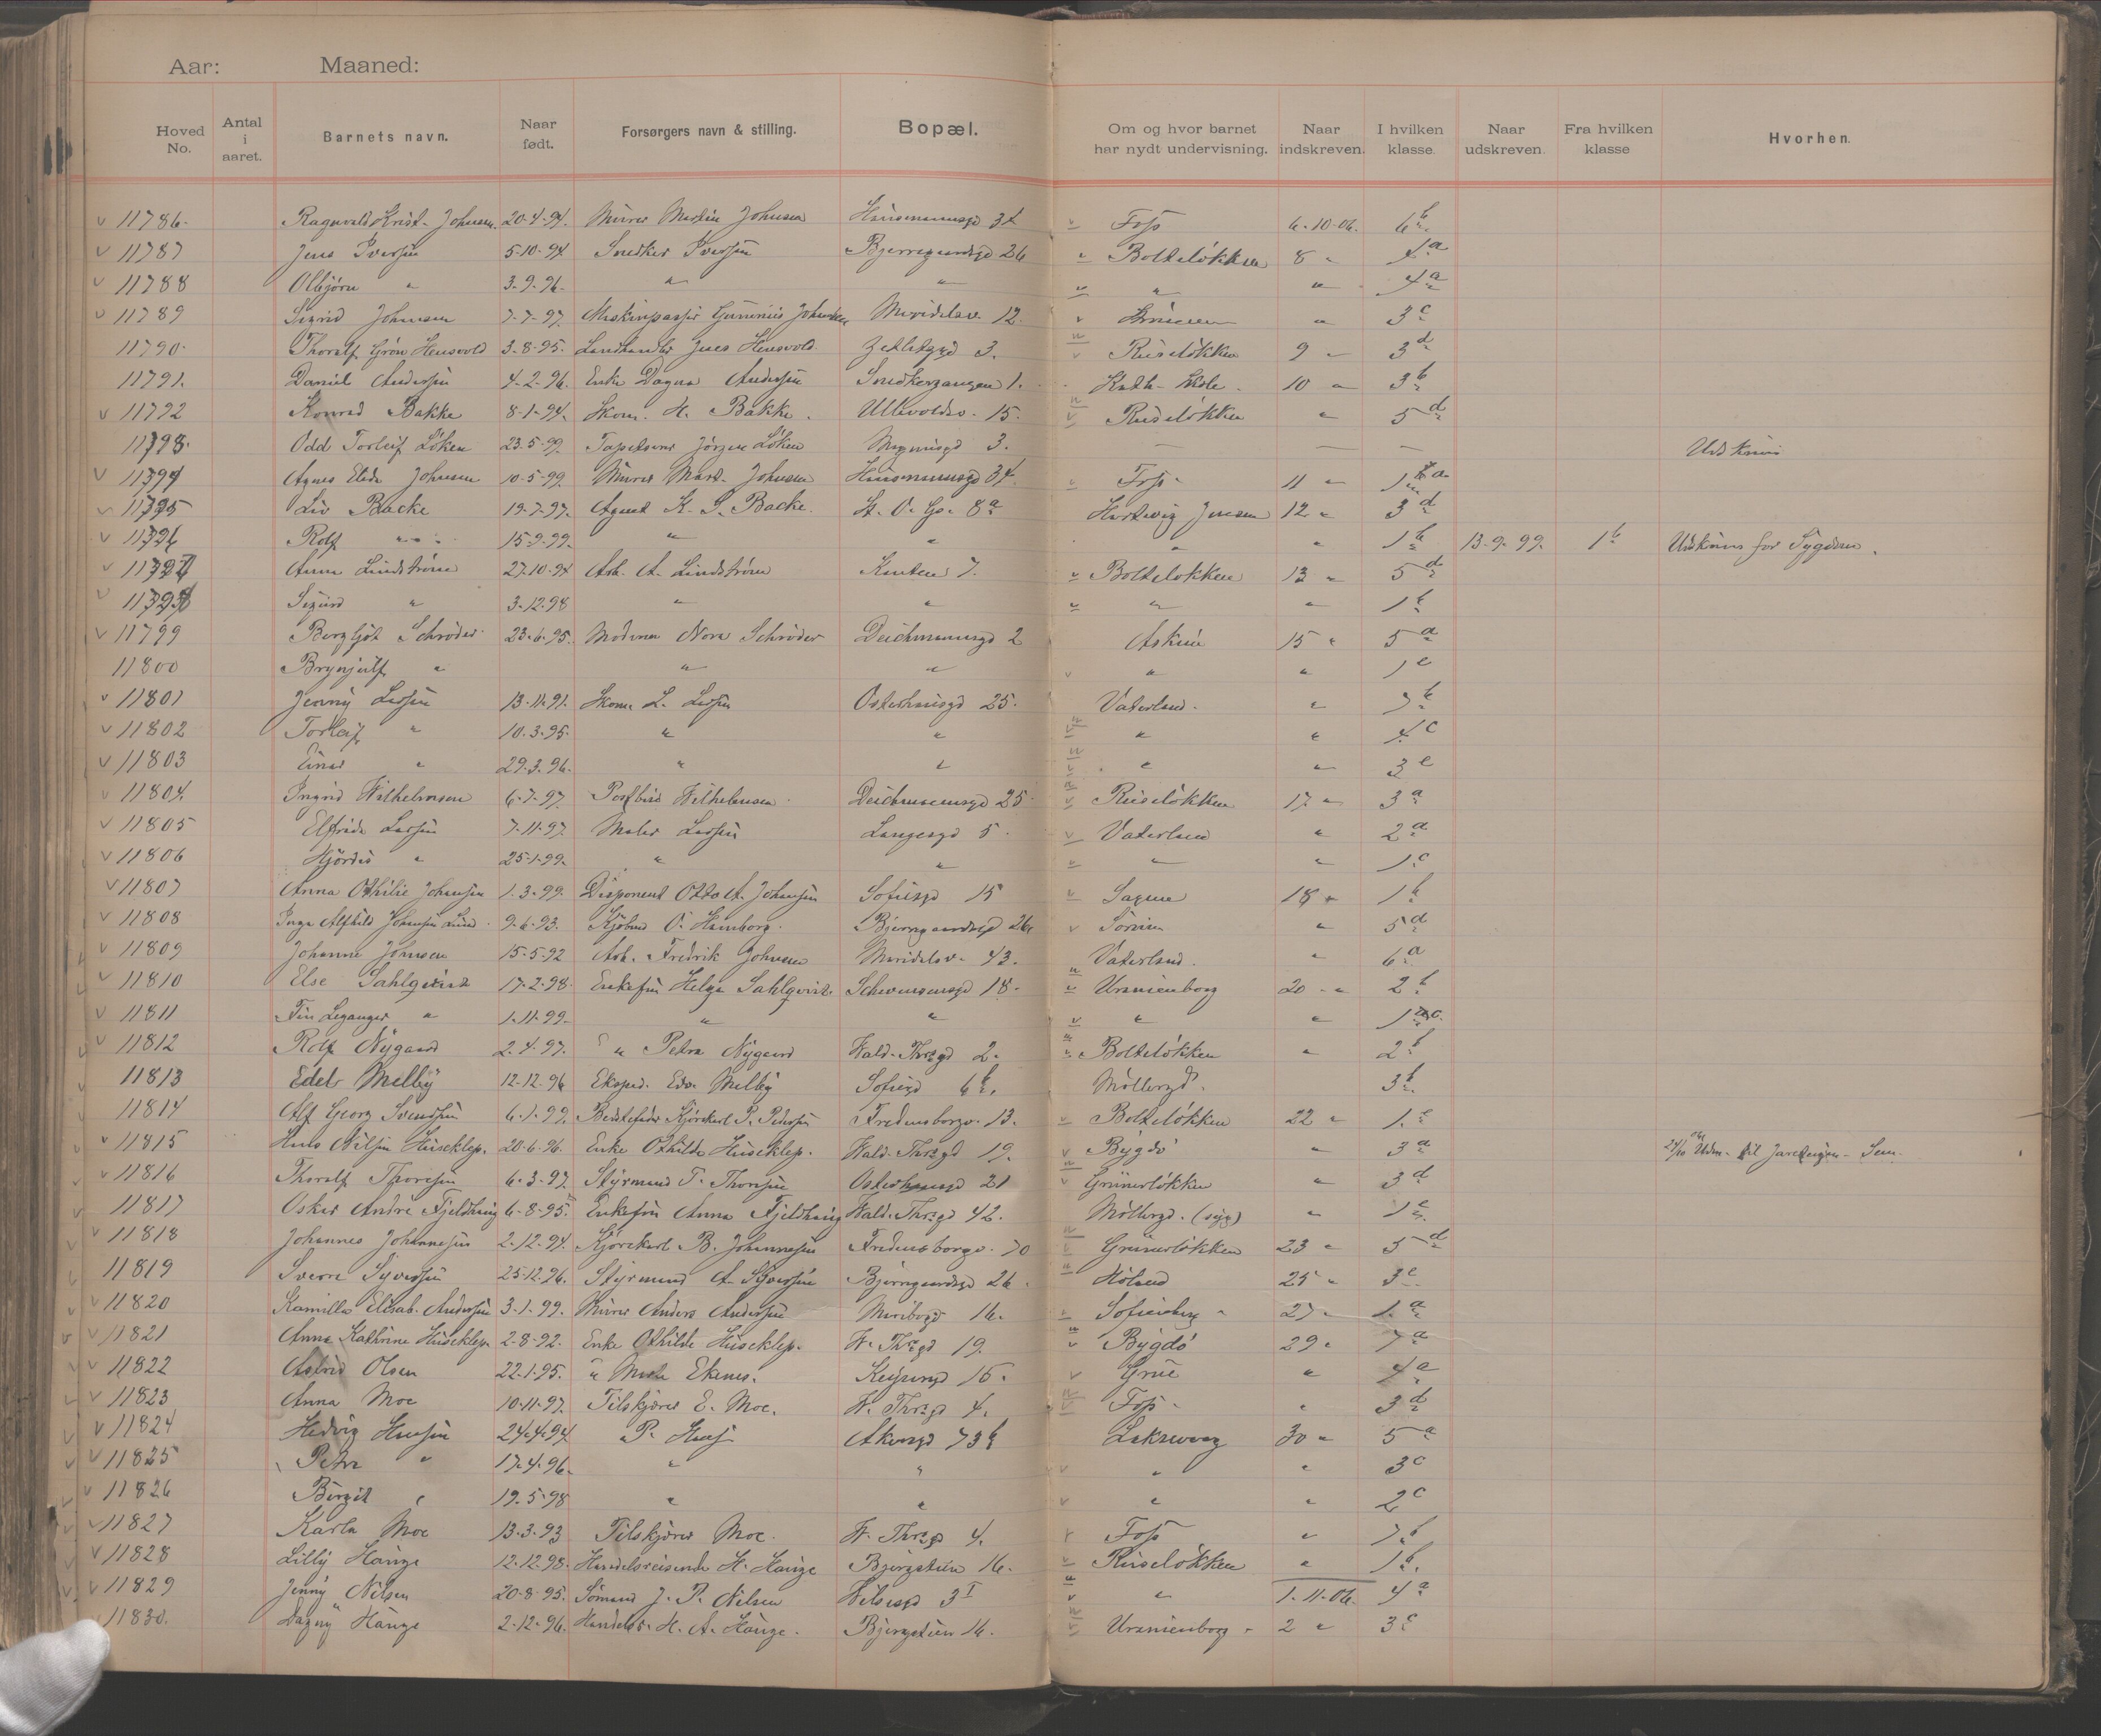 Aar: Maaned:
Hoved No. Antal i aaret. Barnets navn. Naar født. Forsørgers navn & stilling. Bopæl. Om og hvor barnet har nydt undervisning. Naar indskreven. I hvilken klasse. Naar udskreven. Fra hvilken klasse Hvorhen.
v 11786. Ragnvald Krist. Johnsen 20-4-94. Murer Martin Johnsen Hausmannsgd 34 Foss 6-10-06. 6b
v 11787 Jens Iversen 5-10-94 Snedker Iversen Bjerregaardsgd 26 Bolteløkken 8 " 4a
v 11788 Olbjörn " 3-9-96. " " " " 4a
v 11789 Sigrid Johnsen 7-7-97. Maskinpasser Johnsen Maridalsv. 12. v " 3c
11790. Thoralf Grön Hensvold 3-8-95. Landhandler Jens Hensvold. Zetlitzgd 3. v Ruseløkken 9 " 3d
11791. Daniel Andersen 4-2-96. Enke Dagna Andersen Snedkergangen 1. Kath. Skole. 10 " 3b
v 11792 Konrad Bakke 8-1-94. Skom. H. Bakke. Ullevoldsv. 15. v Ruseløkken " 5d
11798. Odd Torleif Löken 23-5-99. Tapetserer Jörgen Löken 3. — — —
v 11794 Agnes Johnsen 10-5-99. Murer Mart. Johnsen Hausmannsgd 34. Foss 11 " 1a
11795 Liv Backe 19-7-97. Agent K. S. Backe. St. O. G. 8a Hartvig Jensen 12 " 3d
v 11796 Rolf " 15-9-99. " " " " 1b 13-9-99. 1b Udskrives for Sygdom.
v 11797 Anna Lindström 27-10-94 Arb. A. Lindström 7. Bolteløkken 13 " 5d
v 11798 Sigurd " 3-12-98 " " " " 1b
v 11799 Bergljot Schrøder 23-6-95. Nora Schrøder Deichmannsgd 2 Askim 15 " 5a
11800 Brynjulf " " " v " " 1c
v 11801 Jenny Larsen 13-11-91. Skom. L. Larsen Osterhausgd 25. Vaterland. " 7b
v 11802 Torleif " 10-3-95. " " " " 4c
v 11803 Einar " 29-3-96. " " " " 3e
11804. Ingrid Wilhelmsen 6-7-97. Postbud Wilhelmsen. Deichmannsgd 25 v Ruseløkken 17 " 3a
v 11805 Elfrida Larsen 7-11-97. Maler Larsen Langesgd 5. v Vaterland " 2a
v 11806 Hjördis " 25-1-99. " " " " 1c
v 11807 Anna Othilie Johansen 1-3-99. Disponent Otto A. Johansen Sofiesgd 15 Sagene 18 " 1b
v 11808 Inga Alfhild Johansen 9-6-93. Kjøbmd O. Hamborg. Bjerregaardsgd 26 v " 5d
v 11809 Johanne Johnsen 15-5-92 Arb. Fredrik Johnsen Maridalsv. 43. Vaterland. " 6a
v 11810 Else Sahlqvist 17-2-98. Enkefru Helga Sahlqvist. Schwensensgd 18. Uranienborg 20 " 2b
v 11811 Fin Leganger " 1-11-99. " " v " " 1c
v 11812 Rolf Nygaard 2-4-97. " Petra Nygaard Wald. Thr.gd 2. Bolteløkken " 2b
11813 Edel Melby 12-12-96 Eksped. Edv. Melby Sofiegd 6b. Möllergd. 3b
11814 Alf Georg Svendsen 6-1-99. Bestefader Kjørekarl P. Pedersen Fredensborgv. 13. Bolteløkken 22 " 1e
v 11815 Hans Nilsen Huseklep. 20-6-96. Enke Othilde Huseklep. Wald. Thr.gd 19. v Bygdö " 3a 24/10 Udm. til Jarlsbergen - Sem.
v 11816 Thoralf Thoresen 6-3-97. Styrmand T. Thoresen Osterhausgd 21 v Grünerløkken " 3d
11817 Oskar Andre Fjeldhaug 6-8-95. Enkefru Anna Fjeldhaug Wald. Thr.gd 42. Möllergd. (syg) " 1e
v 11818 Johannes Johannesen 2-12-94. Kjörekarl B. Johannesen Fredensborgv. 70 Grünerløkken 23 " 5d
11819 Sverre Syversen 25-12-96. Styrmand A. Syversen Bjerregaardsgd 26. Höland 25 " 3c
v 11820 Kamilla Elisab. Andersen 3-1-99. Murer Anders Andersen 16. Sofienberg 27 " 1a
v 11821 Anna Kathrine Huseklep. 2-8-92. Enke Othilde Huseklep. W. Thr.gd 19. v Bygdö 29 " 7a
v 11822 Astrid Olsen 22-1-95. " Ekenes. Keysersgd 15. v Grue " 4a
v 11823 Anna Moe 10-11-97. Tilskjærer E. Moe. W. Thr.gd 4. Foss " 3d
v 11824 Hedvig Hansen 24-4-94 P. Hans Akersgd 73b Laksevaag 30 " 5a
v 11825 Petra " 17-4-96. " " v " " 3c
v 11826 Borgit " 19-5-98 " " v " " 2c
v 11827 Karla Moe 13-3-93 Tilskjærer Moe. W. Thr.gd 4. Foss " 7b
v 11828 Lilly Hauge 12-12-98. Handelsreisende H. Hauge Bjergstien 16. Ruseløkken " 1b.
v 11829 Jenny Nilsen 20-8-95. Sömand J. P. Nilsen Wilsesgd 3 I v " 1-11-06. 4a
11830. Dagny Hauge 2-12-96. Handelsr. H. A. Hauge. Bjergstien 16. Uranienborg 2 " 3c